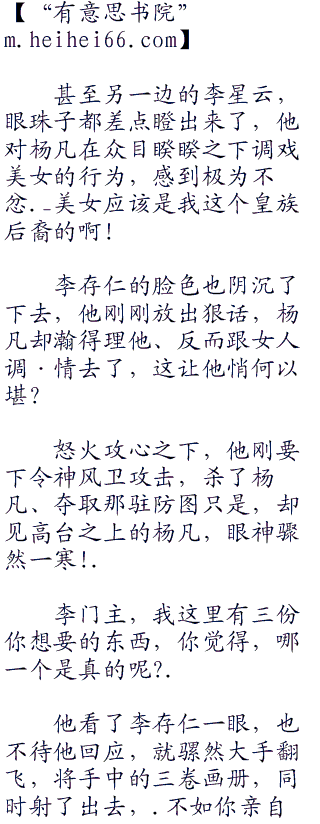 【“有意思书院”
m.heihei66.com】
甚至另一边的李星云，
眼珠子都差点瞪出来了，他
对杨凡在众目睽睽之下调戏
美女的行为，感到极为不
忿._美女应该是我这个皇族
后裔的啊！
李存仁的脸色也阴沉了
下去，他刚刚放出狠话，杨
凡却瀚得理他、反而跟女人
调·情去了，这让他悄何以
堪？
怒火攻心之下，他刚要
下令神风卫攻击，杀了杨
凡、夺取那驻防图只是，却
见高台之上的杨凡，眼神骤
然一寒！.
李门主，我这里有三份
你想要的东西，你觉得，哪
一个是真的呢?.
他看了李存仁一眼，也
不待他回应，就骡然大手翻
飞，将手中的三卷画册，同
时射了出去，.不如你亲自